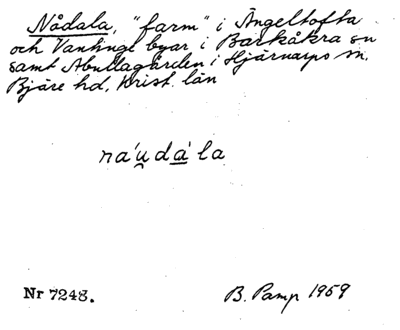 Nådala, "farm" i Ängeltofta
och Vantinge byar i Barkåkra sn
samt Abullagården i Hjärnarps sn,
Bjäre hd, Krist. län
ná'u̯dá̱'la
Nr 7248.
B. Pamp 1959